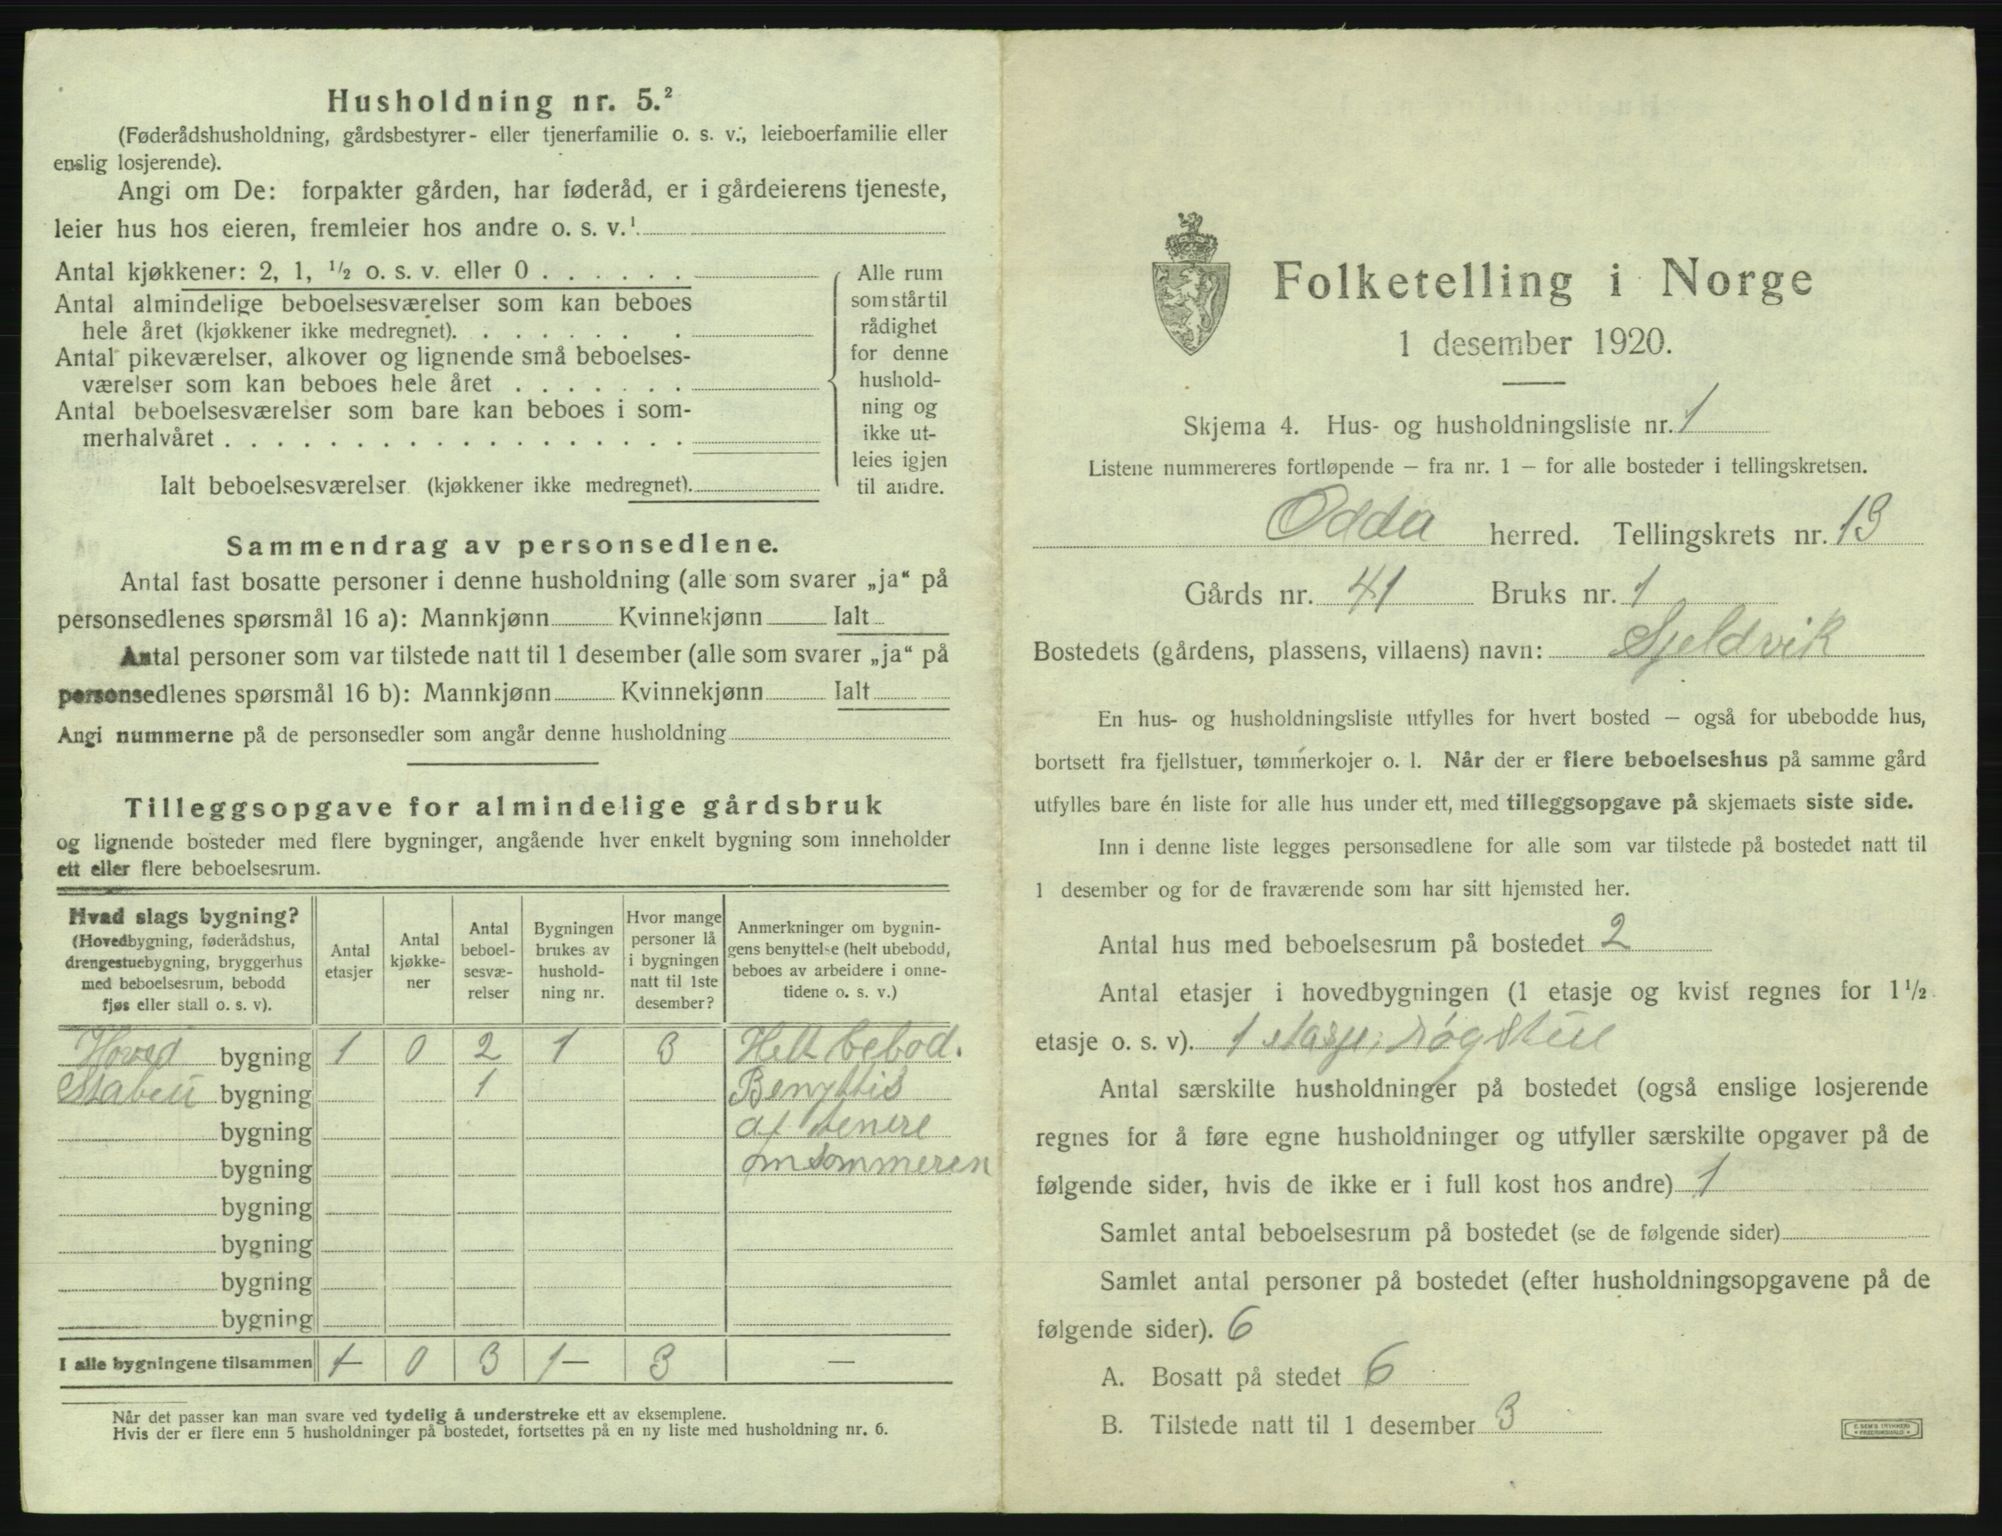 Husholdning nr. 5.²
(Føderådshusholdning, gårdsbestyrer- eller tjenerfamilie o. s. v., leieboerfamilie eller
enslig losjerende).
Angi om De: forpakter gården, har føderåd, er i gårdeierens tjeneste,
leier hus hos eieren, fremleier hos andre o. s. v.¹
Antal kjøkkener: 2, 1, ½ o. s. v. eller 0 . . . . . .
Antal almindelige beboelsesværelser som kan beboes
hele året (kjøkkener ikke medregnet). . . . . . .
Antal pikeværelser, alkover og lignende små beboelses-
værelser som kan beboes hele året . . . . . . .
Antal beboelsesværelser som bare kan beboes i som-
merhalvåret . . . . . . . . . . . . . . . . . .
Ialt beboelsesværelser (kjøkkener ikke medregnet).
Alle rum
som står til
rådighet
for denne
hushold-
ning og
ikke ut-
leies igjen
til andre.
Sammendrag av personsedlene.
Antal fast bosatte personer i denne husholdning (alle som svarer „ja“ på
personsedlenes spørsmål 16 a): Mannkjønn Kvinnekjønn Ialt
Antal personer som var tilstede natt til 1 desember (alle som svarer „ja“ på
personsedlenes spørsmål 16 b): Mannkjønn Kvinnekjønn Ialt
Angi nummerne på de personsedler som angår denne husholdning
Tilleggsopgave for almindelige gårdsbruk
og lignende bosteder med flere bygninger, angående hver enkelt bygning som inneholder
ett eller flere beboelsesrum.
Hvad slags bygning?
(Hovedbygning, føderådshus,
drengestuebygning, bryggerhus
med beboelsesrum, bebodd
fjøs eller stall o. s. v).
Antal
etasjer
Antal
kjøkke-
ner
Antal
beboel-
sesvæ-
relser
Bygningen
brukes av
hushold-
ning nr.
Hvor mange
personer lå
i bygningen
natt til 1ste
desember?
Anmerkninger om bygnin-
gens benyttelse (helt ubebodd,
beboes av arbeidere i onne-
tidene o. s. v.)
Hoved bygning 1 0 2 1 3 Helt bebod.
Stabeu bygning 1 Benyttis
bygning af tenere
bygning om sommeren
bygning
bygning
bygning
bygning
I alle bygningene tilsammen 1- 0 3 1- 3 —
Når det passer kan man svare ved tydelig å understreke ett av eksemplene.
Hvis der er flere enn 5 husholdninger på bostedet, fortsettes på en ny liste med husholdning nr. 6.
Folketelling i Norge
1 desember 1920.
Skjema 4. Hus- og husholdningsliste nr. 1
Listene nummereres fortløpende – fra nr. 1 – for alle bosteder i tellingskretsen.
Odda herred. Tellingskrets nr. 13
Gårds nr. 41 Bruks nr. 1
Bostedets (gårdens, plassens, villaens) navn: Sjeldvik
En hus- og husholdningsliste utfylles for hvert bosted – også for ubebodde hus,
bortsett fra fjellstuer, tømmerkojer o. l. Når der er flere beboelseshus på samme gård
utfylles bare én liste for alle hus under ett, med tilleggsopgave på skjemaets siste side.
Inn i denne liste legges personsedlene for alle som var tilstede på bostedet natt til
1 desember og for de fraværende som har sitt hjemsted her.
Antal hus med beboelsesrum på bostedet 2
Antal etasjer i hovedbygningen (1 etasje og kvist regnes for 1½
etasje o. s. v). 1 etasje, røgstue
Antal særskilte husholdninger på bostedet (også enslige losjerende
regnes for å føre egne husholdninger og utfyller særskilte opgaver på de
følgende sider, hvis de ikke er i full kost hos andre) 1
Samlet antal beboelsesrum på bostedet (se de følgende sider)
Samlet antal personer på bostedet (efter husholdningsopgavene på de
følgende sider). 6
A. Bosatt på stedet 6
B. Tilstede natt til 1 desember 3
E. SEM'S TRYKKERI
FREDRIKSHALD